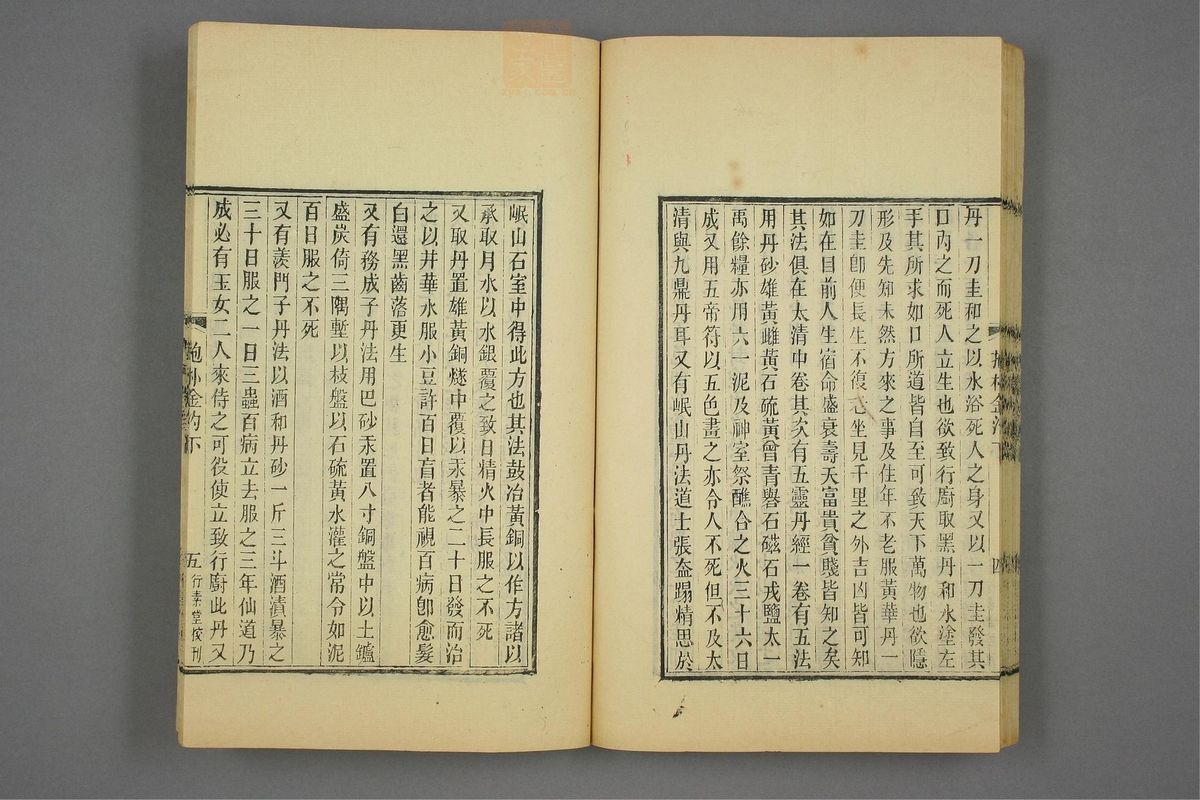 丹一刀圭和之以水浴死人之身又以一刀圭發其
口內之而死人立生也欲致行廚取黑丹和水塗左
手其所求如口所道皆自至可致天下萬物也欲隱
形及先知未然方來之事及住年不老服黃華丹一
刀圭卽便長生不復老坐見千里之外吉凶皆可知
如在目前人生宿命盛衰壽夭富貴貧賤皆知之矣
其法俱在太清中卷其次有五靈丹經一卷有五法
用丹砂雄黃雌黃石硫黃曾青礜石磁石戎鹽太一
禹餘糧亦用六一泥及神室祭醮合之火三十六日
成又用五帝符以五色畫之亦令人不死但不及太
清與九鼎丹耳又有岷山丹法道士張蓋蹋精思於
四
岷山石室中得此方也其法鼓冶黃銅以作方諸以
承取月水以水銀覆之致日精火中長服之不死
又取丹置雄黃銅燧中覆以汞暴之二十日發而治
之以井華水服小豆許百日盲者能視百病卽愈髮
白還黑齒落更生
又有務成子丹法用巴砂汞置八寸銅盤中以土鑪
盛炭倚三隅墼以枝盤以石硫黃水灌之常令如泥
百日服之不死
又有羨門子丹法以酒和丹砂一斤三斗酒漬暴之
三十日服之一日三蟲百病立去服之三年仙道乃
成必有玉女二人來侍之可役使立致行廚此丹又
五 行素堂校刊